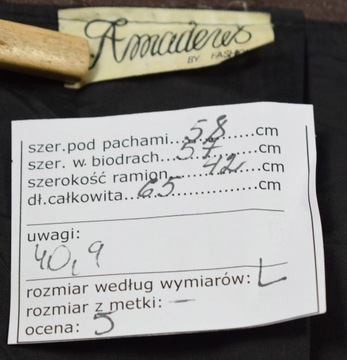 Amadeus
BY FASHION
szer.pod pachami...58......cm
szer. w biodrach...57.......cm
szerokość ramion......42...cm
dł.całkowita...65............cm
uwagi:
40,9
rozmiar według wymiarów: L
rozmiar z metki: —
ocena: 5